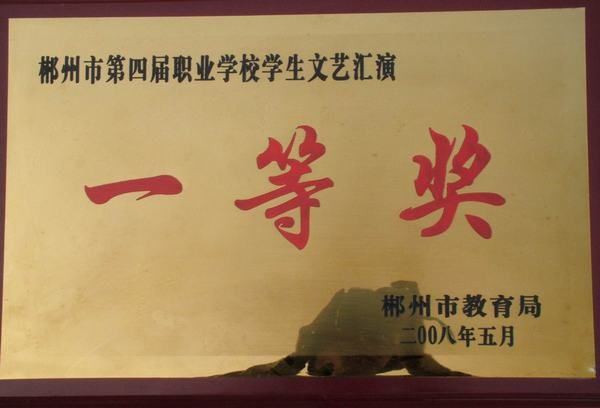 郴州市第四届职业学校学生文艺汇演
一等奖
郴州市教育局
二00八年五月